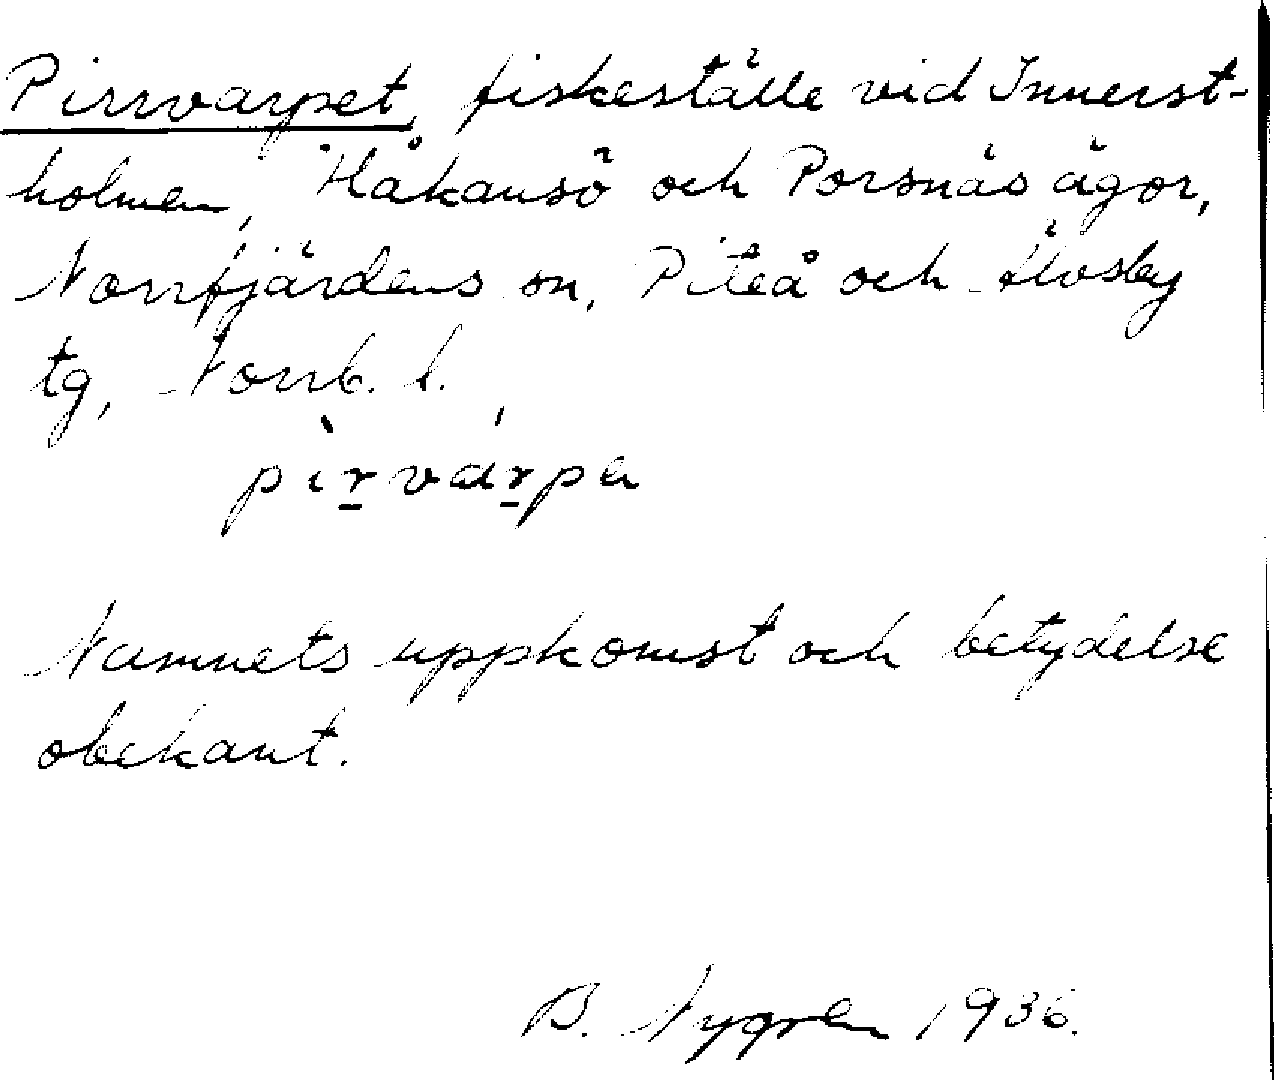 Pirrvarpet, fiskeställe vid Innerst-
holmen, Håkansö och Porsnäs ägor,
Norrfjärdens sn, Piteå och Älvsby
tg, Norrb. l.
pìrvárpa
Namnets uppkomst och betydelse
obekant.
B. Nygren 1936.